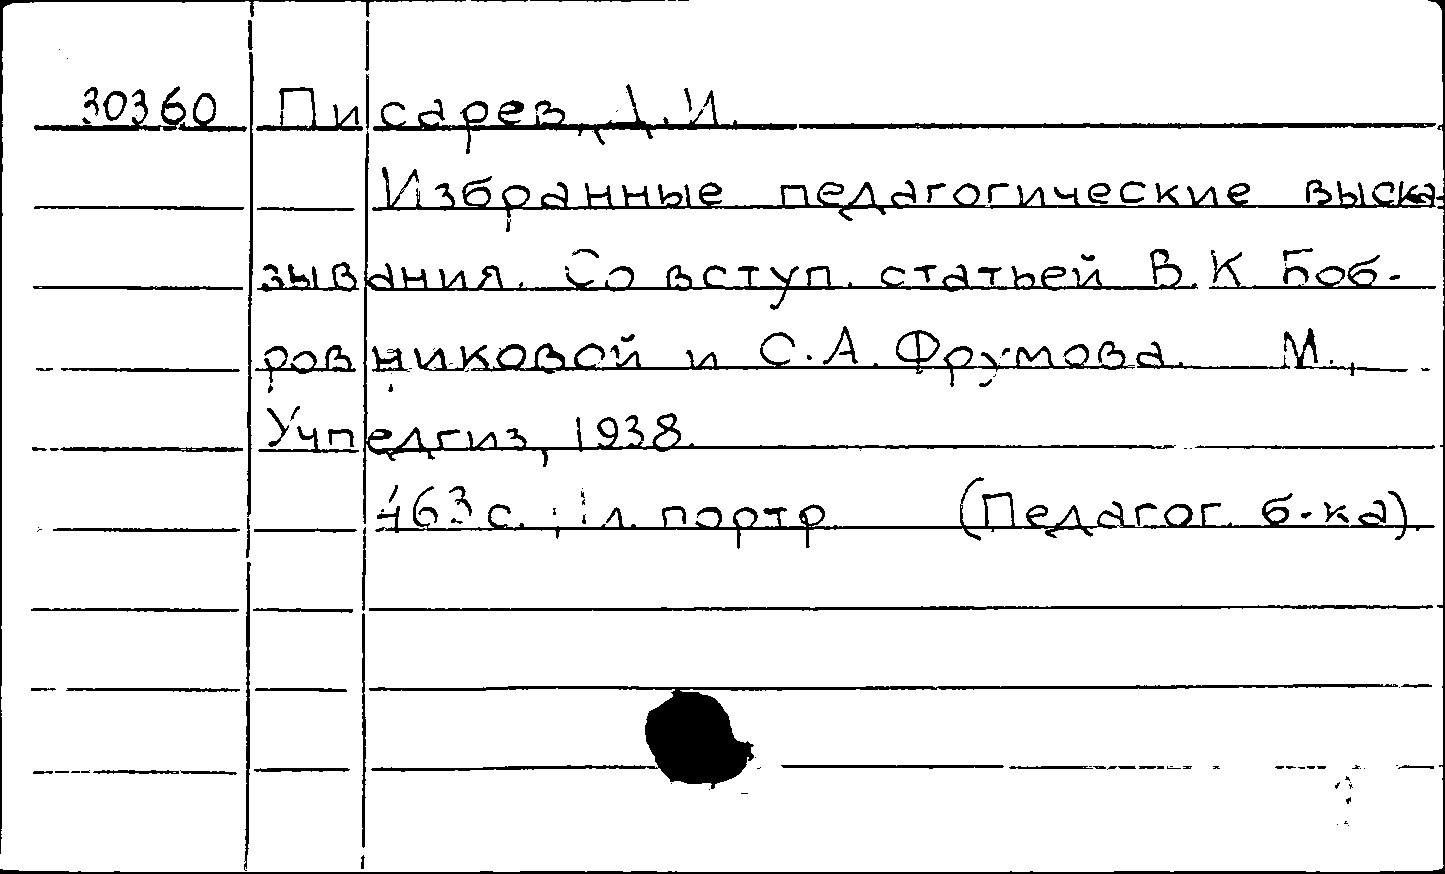 30360 Писарев, Д.И.
Избранные педагогические выска-
зывания. Со вступ. статьей В.К Боб-
ровниковой и С.А. Фрумова. М.,
Учпедгиз, 1938.
463 с. ; 1 л. портр (Педагог. б-ка).